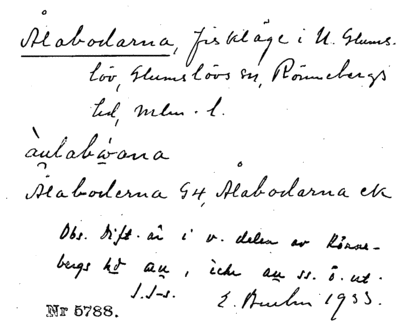 Ålabodarna, fiskläge i N. Glums-
löv, Glumslövs sn, Rönnebergs
hd, Mlm. l.
àu̯labẁana
Ålaboderna G4, Ålabodarna ek
Obs. Dift. äi i v. delen av Rönne-
bergs hd au̯, icke au̯ ss. ö. ut.
I.I-s. E. 1933.
Nr 5788.